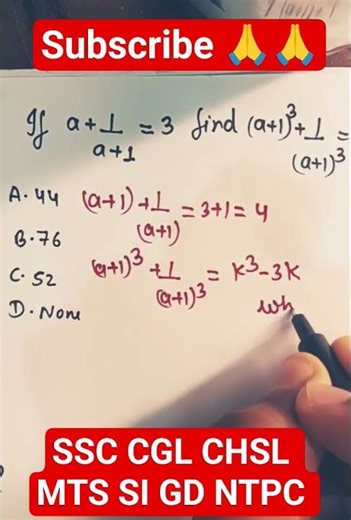 Subscribe 🙏🙏
If a+1/a+1 = 3 find (a+1)³+1/(a+1)³ =
A. 44
(a+1)+1/(a+1) = 3+1 = 4
B. 76
C. 52
(a+1)³+1/(a+1)³ = K³-3K
D. None
Wh
SSC CGL CHSL
MTS SI GD NTPC